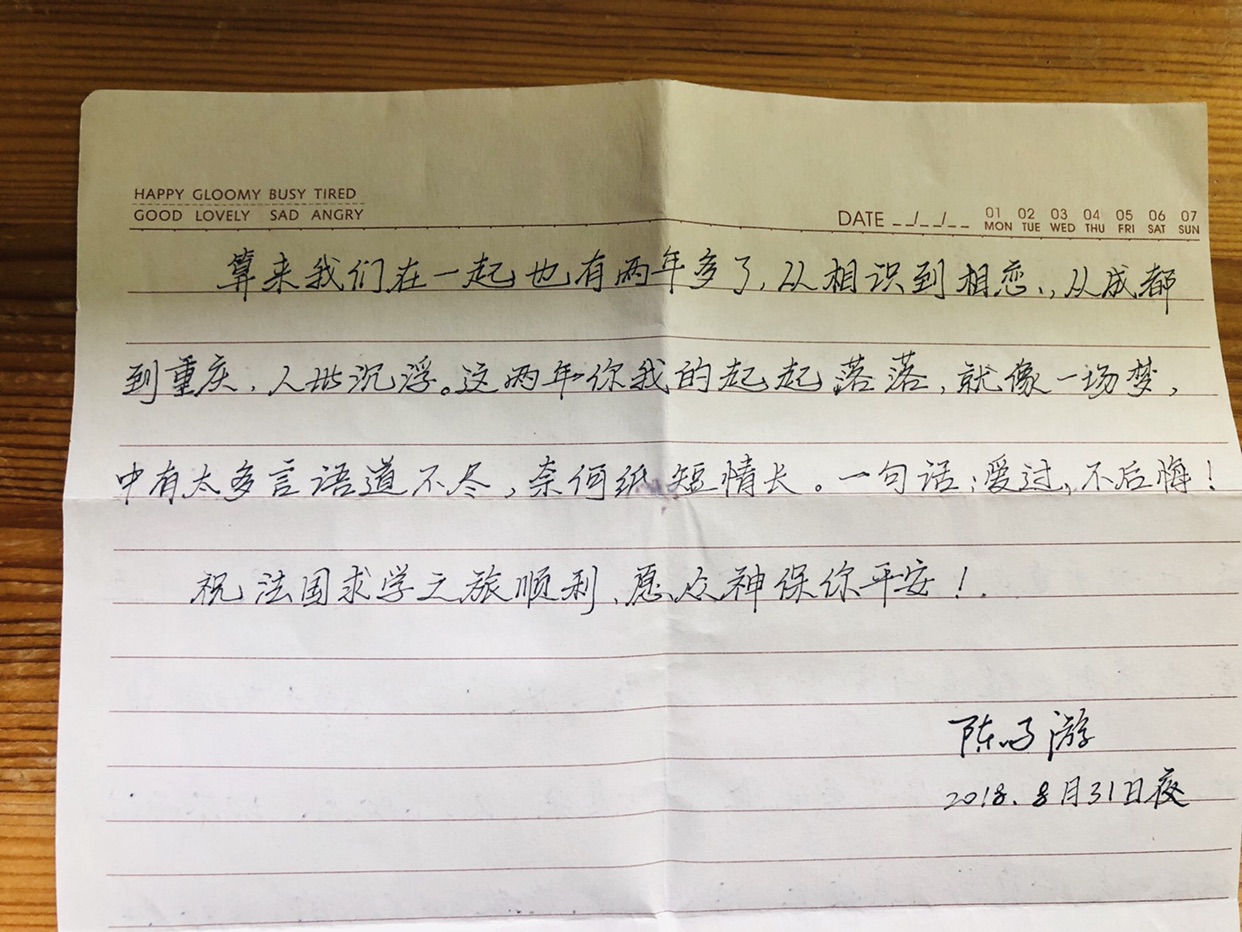 HAPPY GLOOMY BUSY TIRED
GOOD LOVELY SAD ANGRY
DATE __/__/__ 01 02 03 04 05 06 07
MON TUE WED THU FRI SAT SUN
算来我们在一起也有两年多了,从相识到相恋,从成都
到重庆,人世沉浮。这两年你我的起起落落,就像一场梦,
中有太多言语道不尽,奈何纸短情长。一句话:爱过,不后悔!
祝法国求学之旅顺利,愿众神保你平安!
陈鸣游
2018.8月31日夜